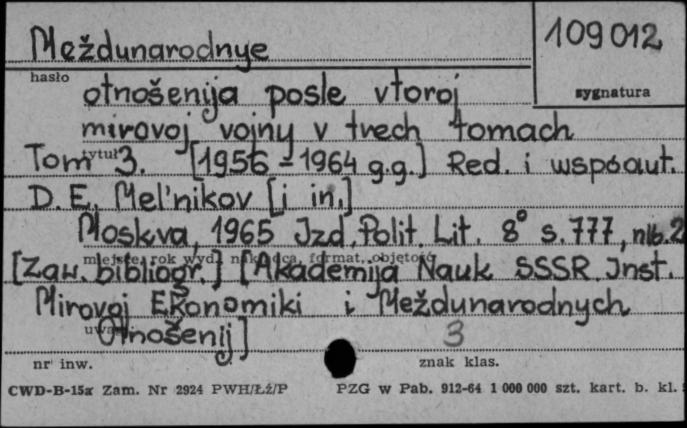 Meždunarodnye
109012
hasło
sygnatura
otnošenija posle vtoroj
mirovoj vojny v trech tomach
tytuł
Tom 3. [1956-1964 g.g.] Red. i wspóaut.
D.E. Mel'nikov [i in.]
Moskva, 1965 Izd. Polit. Lit. 8° s. 777, nlb. 2
miejsce, rok wyd., nakładca, format, objętość
[Zaw. bibliogr.] [Akademija Nauk SSSR Inst.
Mirovoj Ekonomiki i Meždunarodnych
Otnošenij]
3
nr inw.
znak klas.
CWD-B-15a Zam. Nr 2924 PWH/Łź/P
PZG w Pab. 912-64 1 000 000 szt. kart. b. kl.